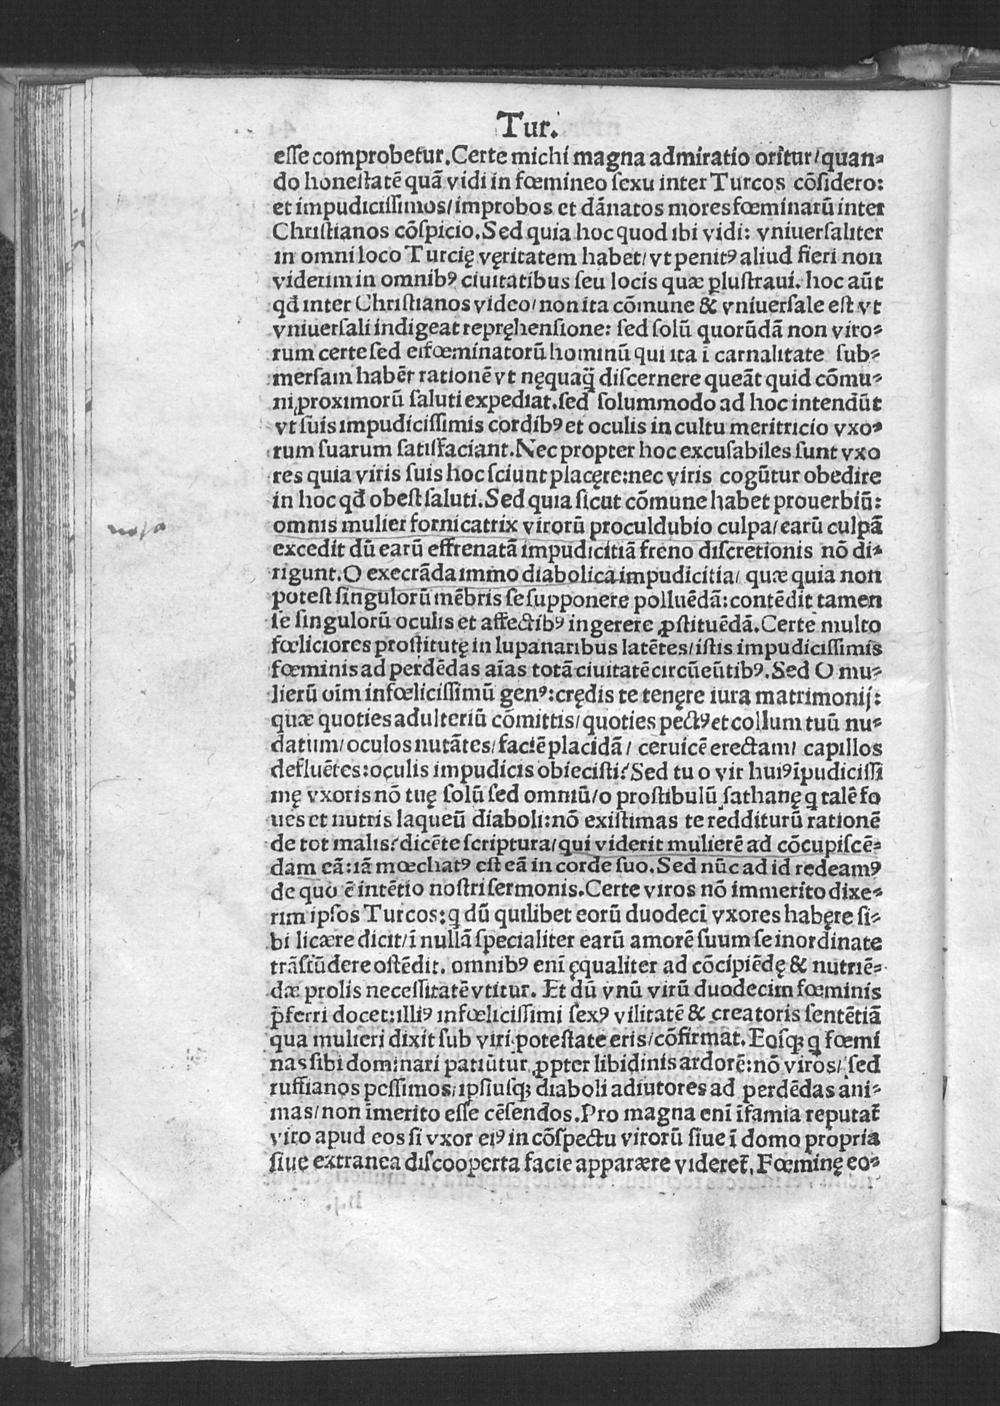 Tur.
esse comprobetur. Certe michi magna admiratio oritur/ quan-
do honestatē quā vidi in fœmineo sexu inter Turcos cōsidero:
et impudicissimos/ improbos et dānatos mores fœminarū inter
Christianos cōspicio. Sed quia hoc quod ibi vidi: vniuersaliter
in omni loco Turcię vęritatem habet/ vt penitꝰ aliud fieri non
viderim in omnibꝰ ciuitatibus seu locis quæ ꝑlustraui. hoc aūt
qđ inter Christianos video/ non ita cōmune & vniuersale est vt
vniuersali indigeat repręhensione: sed solū quorūdā non viro-
rum certe sed eifœminatorū hominū qui ita ī carnalitate sub-
mersam habēt rationē vt nęquaq̄ discernere queāt quid cōmu-
ni proximorū saluti expediat. sed solummodo ad hoc intendūt
vt suis impudicissimis cordibꝰ et oculis in cultu meritricio vxo-
rum suarum satisfaciant. Nec propter hoc excusabiles sunt vxo
res quia viris suis hoc sciunt placęre: nec viris cogūtur obedire
in hoc qđ obest saluti. Sed quia sicut cōmune habet prouerbiū:
omnis mulier fornicatrix virorū proculdubio culpa/ earū culpā
excedit dū earū effrenatā impudicitiā freno discretionis nō di-
rigunt. O execrāda immo diabolica impudicitia/ quæ quia non
potest singulorū mēbris se supponere polluēdā: contēdit tamen
se singulorū oculis et affectibꝰ ingerere ꝓstituēdā. Certe multo
fœliciores prostitutę in lupanaribus latētes/ istis impudicissimis
fœminis ad perdēdas aīas totā ciuitatē circūeūtibꝰ. Sed O mu-
lierū oīm infœlicissimū genꝰ: crędis te tenęre iura matrimonij:
quæ quoties adulteriū cōmittis/ quoties pectꝰ et collum tuū nu-
datum/ oculos nutātes/ faciē placidā/ ceruicē erectam/ capillos
defluētes: oculis impudicis obiecisti? Sed tu o vir huiꝰ īpudicissi
mę vxoris nō tuę solū sed omniū/ o prostibulū sathanę q talē fo
ues et nutris laqueū diaboli: nō existimas te redditurū rationē
de tot malis? dicēte scriptura/ qui viderit mulierē ad cōcupiscē-
dam eā: iā mœchatꝰ est eā in corde suo. Sed nūc ad id redeamꝰ
de quo ē intētio nostri sermonis. Certe viros nō immerito dixe-
rim ipsos Turcos: q dū quilibet eorū duodeci vxores habęre si-
bi licære dicit/ ī nullā specialiter earū amorē suum se inordinate
trāsfūdere ostēdit. omnibꝰ enī ęqualiter ad cōcipiēdę & nutriē-
dæ prolis necessitatē vtitur. Et dū vnū virū duodecim fœminis
p̄ferri docet: illiꝰ infœlicissimi sexꝰ vilitatē & creatoris sentētiā
qua mulieri dixit sub viri potestate eris/ cōfirmat. Eosqꝫ q fœmi
nas sibi dominari patiūtur ꝓpter libidinis ardorē: nō viros/ sed
ruffianos pessimos/ ipsiusqꝫ diaboli adiutores ad perdēdas ani-
mas/ non īmerito esse cēsendos. Pro magna enī īfamia reputat̄
viro apud eos si vxor eiꝰ in cōspectu virorū siue ī domo propria
siue extranea discooperta facie apparære videret̄. Fœminę eo-